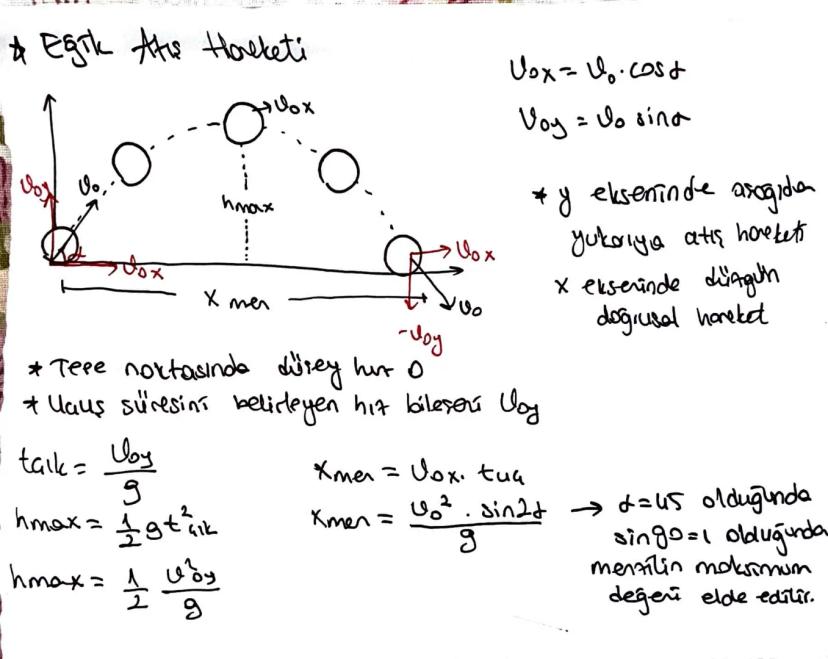 * Eğik Atış Hareketi
V₀x = V₀.cosα
V₀y = V₀ sinα
V₀x
V₀y
V₀
hmax
α
V₀x
V₀x
x men
V₀
-V₀y
* y ekseninde aşağıdan
yukarıya atış hareketi
x ekseninde düzgün
doğrusal hareket
* Tepe noktasında düşey hız 0
* Uçuş süresini belirleyen hız bileşeni V₀y
tçık = V₀y / g
hmax = 1/2 g t²çık
hmax = 1/2 V²₀y / g
xmen = V₀x. tuç
xmen = V₀² . sin2α / g → α=45 olduğunda
sin90=1 olduğunda
menzilin maksimum
değeri elde edilir.